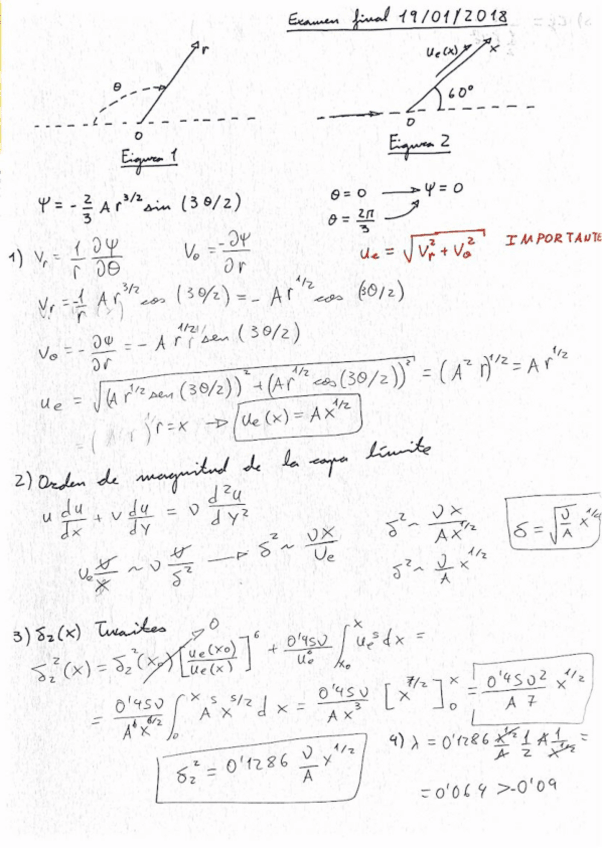 Examen final 19/01/2018
θ
r
0
Figura 1
u_e(x)
x
60°
0
Figura 2
Ψ = -2/3 A r^3/2 sin (3θ/2)
θ = 0 → Ψ = 0
θ = 2π/3
1) V_r = 1/r ∂Ψ/∂θ V_θ = -∂Ψ/∂r
u_e = √(V_r² + V_θ²) IMPORTANTE
V_r = -1/r A r^3/2 cos (3θ/2) = - A r^1/2 cos (3θ/2)
V_θ = -∂Ψ/∂r = - A r^1/2 sen (3θ/2)
u_e = √((A r^1/2 sen (3θ/2))² + (A r^1/2 cos (3θ/2))²) = (A² r)^1/2 = A r^1/2
r = x → u_e(x) = A x^1/2
2) Orden de magnitud de la capa límite
u du/dx + v du/dy = ν d²u/dy²
δ² ~ νx/Ax^1/2
δ = √(ν/A) x^1/4
U_e U/x ~ ν U/δ² → δ² ~ νx/U_e
δ² ~ ν/A x^1/2
3) δ₂(x) Twaites
δ₂²(x) = δ₂²(x₀) [u_e(x₀)/u_e(x)]^6 → 0 + 0'45ν/u_e^6 ∫_x₀^x u_e^5 dx =
= 0'45ν/A^6 x^6/2 ∫_0^x A^5 x^5/2 dx = 0'45ν/Ax³ [x^7/2]_0^x = 0'45ν2/A7 x^1/2
δ₂² = 0'1286 ν/A x^1/2
4) λ = 0'1286 x^1/2/A 1/2 A 1/x^1/2 =
= 0'064 > -0'09